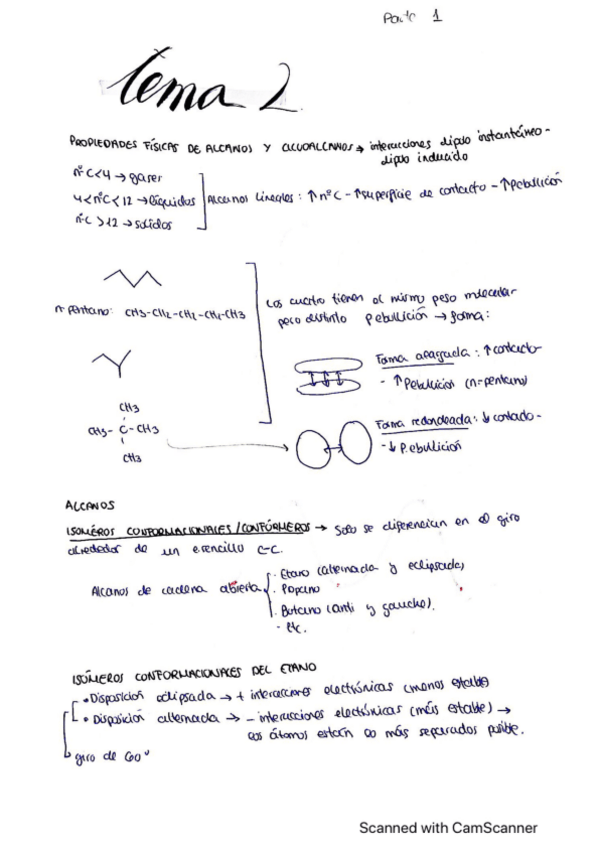 Parte 1
Tema 2
PROPIEDADES FÍSICAS DE ALCANOS Y CICLOALCANOS → interacciones dipolo instantáneo-
dipolo inducido
nºC<4 → gases
4<nºC<12 → líquidos
nºC >12 → sólidos
Alcanos lineales: ↑nºC - ↑superficie de contacto - ↑Pebullición
n-pentano: CH3-CH2-CH2-CH2-CH3
Los cuatro tienen el mismo peso molecular
pero distinto Pebullición → forma:
Forma alargada: ↑contacto-
- ↑Pebullición (n-pentano)
CH3
CH3-C-CH3
CH3
Forma redondeada: ↓contacto-
- ↓P.ebullición
ALCANOS
ISOMÉROS CONFORMACIONALES/CONFÓRMEROS → Solo se diferencian en el giro
alrededor de un sencillo C-C.
Alcanos de cadena abierta
· Etano (alternada y eclipsada)
· Propano
· Butano (anti y gauche).
· etc.
ISÓMEROS CONFORMACIONALES DEL ETANO
• Disposición eclipsada → + interacciones electrónicas (menos estable)
• Disposición alternada → - interacciones electrónicas (más estable) →
los átomos están lo más separados posible.
giro de 60°
Scanned with CamScanner